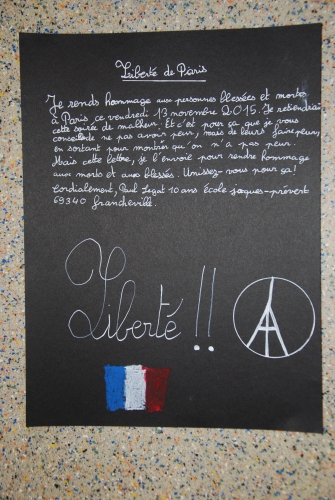 Liberté de Paris
Je rends hommage aux personnes blessées et morts
à Paris ce vendredi 13 novembre 2015. Je retiendrai
cette soirée de malheur. Et c'est pour ça que je vous
conseille de ne pas avoir peur, mais de leurs faire peur,
en sortant pour montrer qu'on n'a pas peur.
Mais cette lettre, je l'envoie pour rendre hommage
aux morts et aux blessés. Unissez-vous pour ça!
Cordialement, Paul Legat 10 ans école jacques-prévert
69340 francheville.
Liberté !!